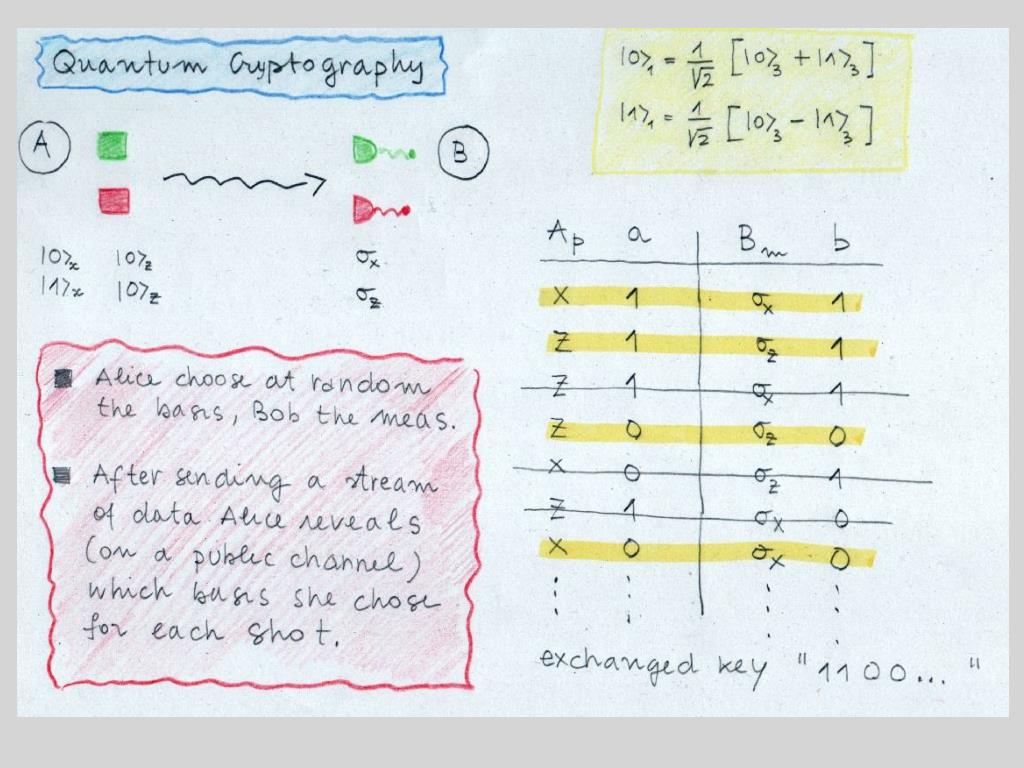 Quantum Cryptography
A
B
|0⟩x |0⟩z σx
|1⟩x |0⟩z σz
■ Alice choose at random
the basis, Bob the meas.
■ After sending a stream
of data Alice reveals
(on a public channel)
which basis she chose
for each shot.
|0⟩₁ = 1/√2 [|0⟩₃ + |1⟩₃]
|1⟩₁ = 1/√2 [|0⟩₃ − |1⟩₃]
Ap a Bm b
X 1 σx 1
Z 1 σz 1
Z 1 σx 1
Z 0 σz 0
X 0 σz 1
Z 1 σx 0
X 0 σx 0
exchanged key "1100..."